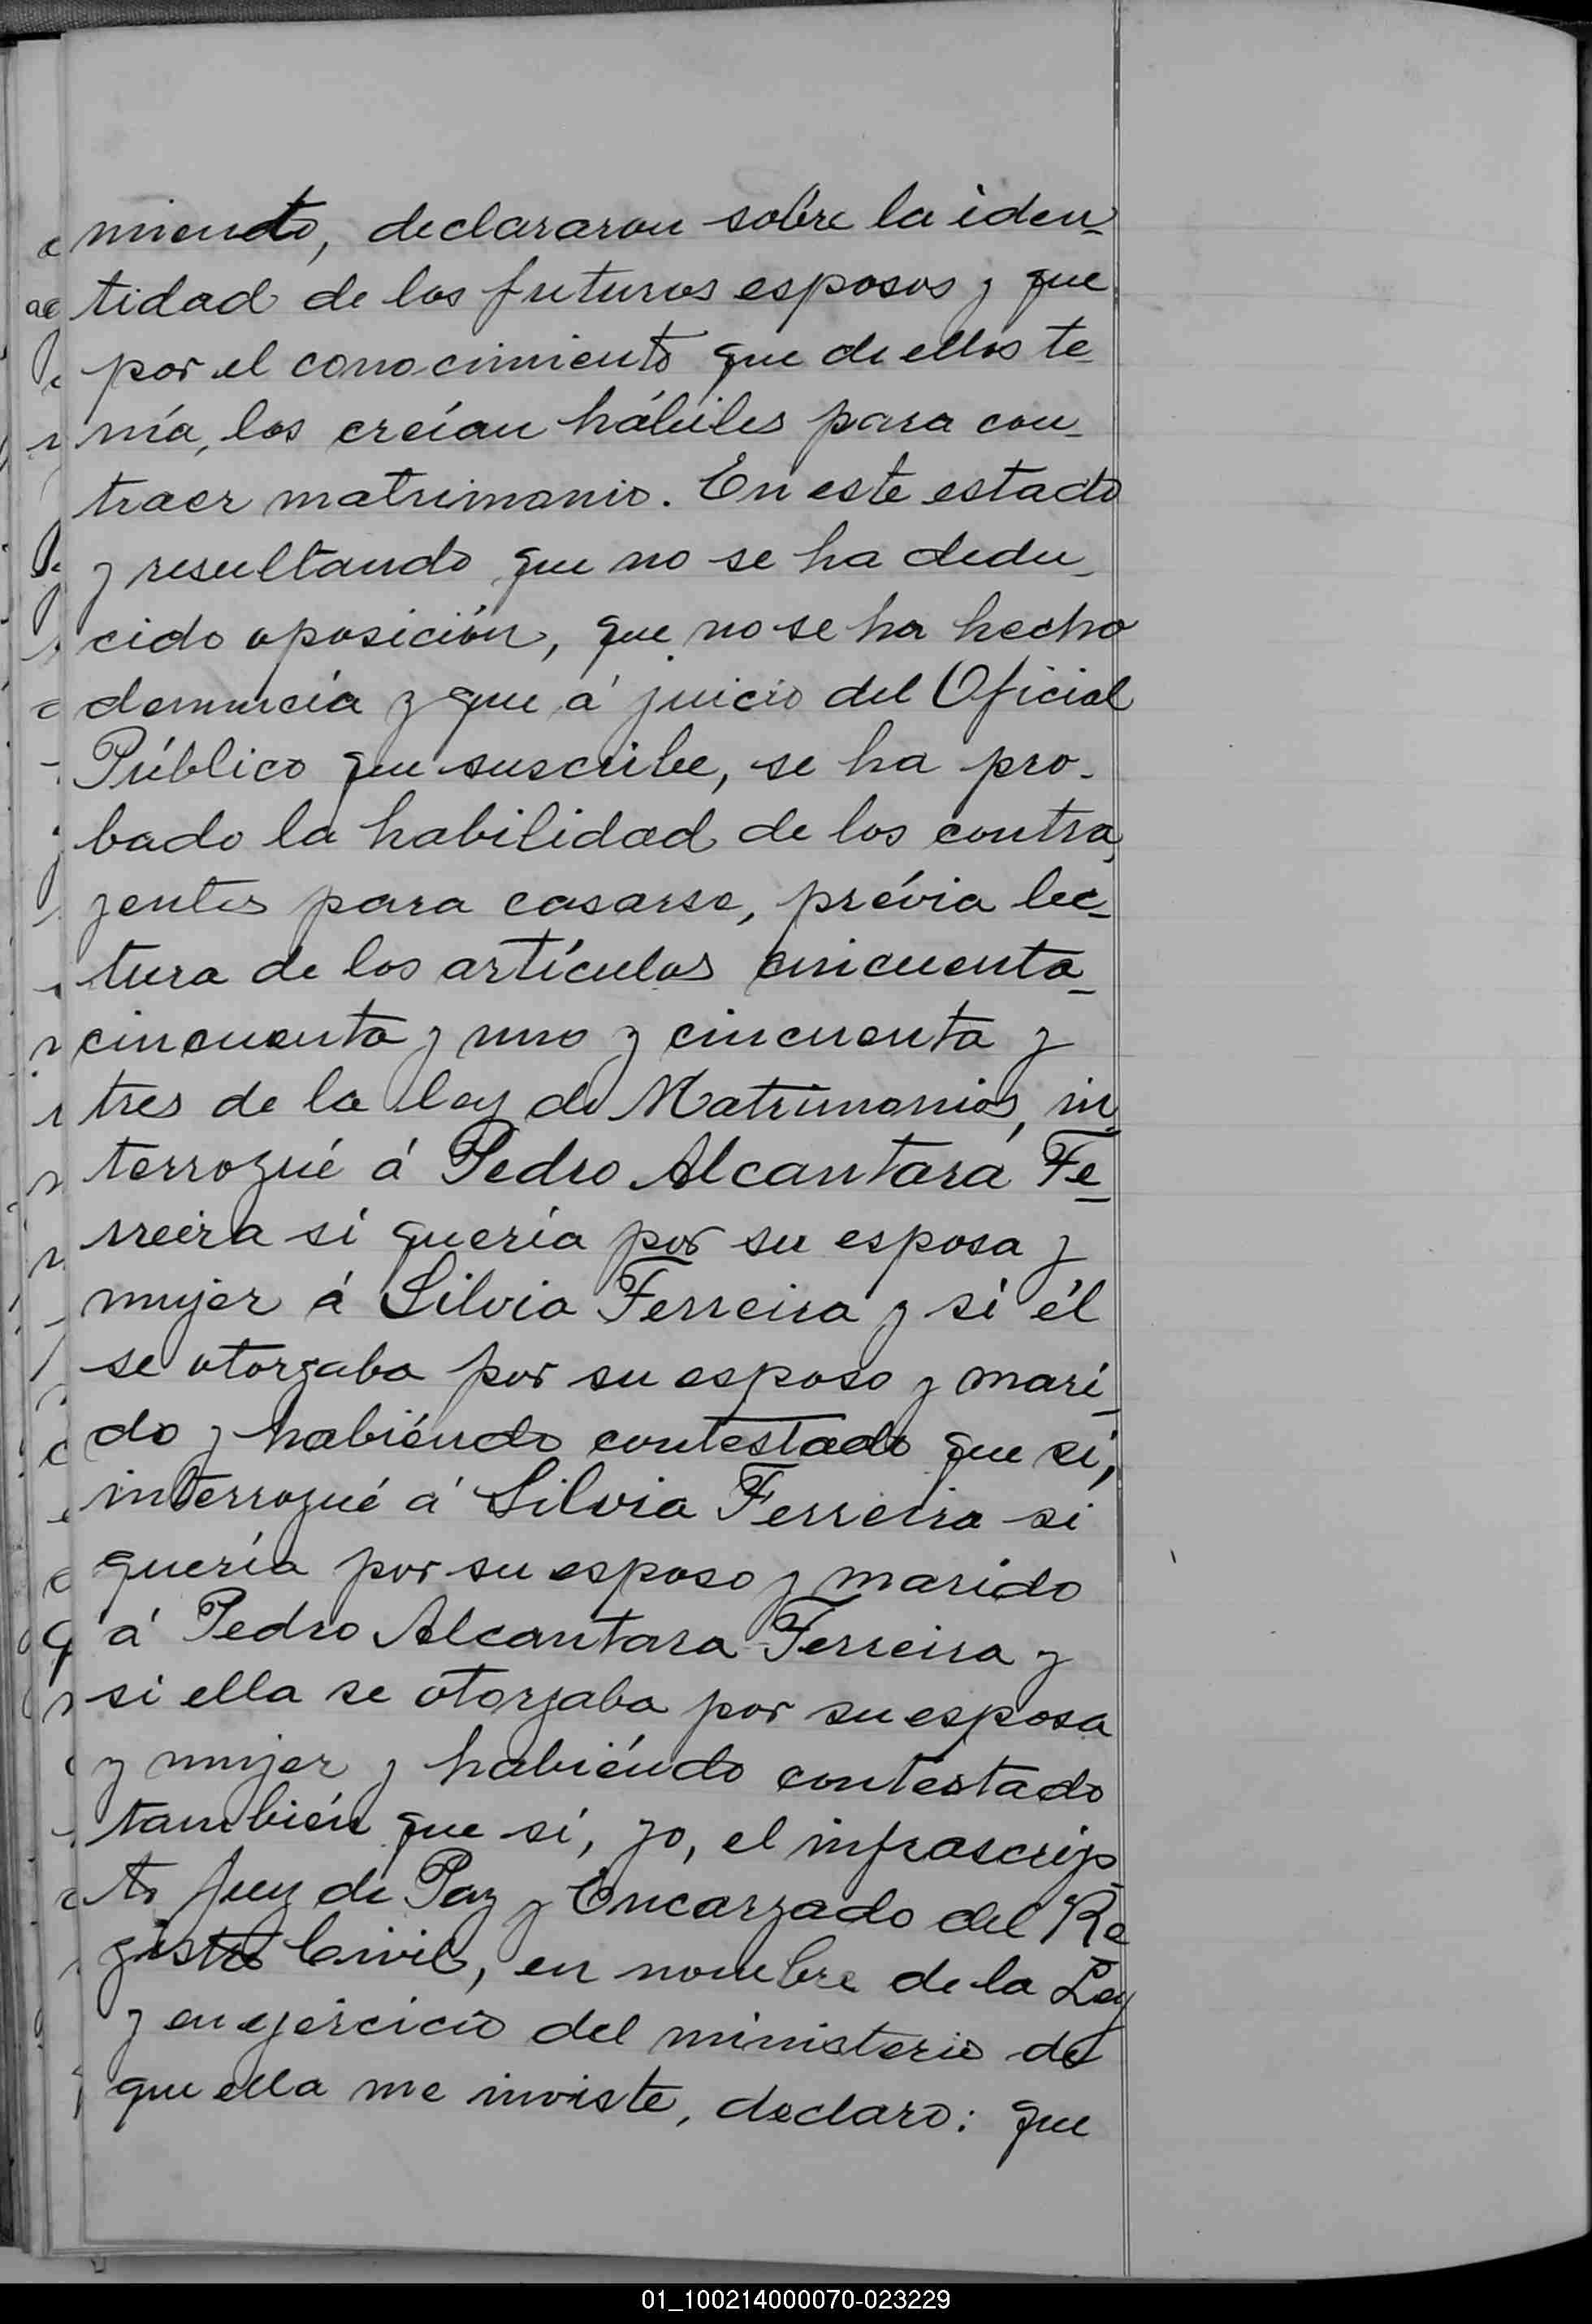 miento, declararon sobre la iden-
tidad de los futuros esposos y que
por el conocimiento que de ellos te-
nía, los creían hábiles para con-
traer matrimonio. En este estado
y resultando que no se ha dedu-
cido oposición, que no se ha hecho
denuncia y que á juicio del Oficial
Público que suscribe, se ha pro-
bado la habilidad de los contra-
yentes para casarse, prévia lec-
tura de los artículos cincuenta-
cincuenta y uno y cincuenta y
tres de la ley de Matrimonios, in-
terrogué á Pedro Alcantara Fe-
rreira si quería por su esposa y
mujer á Silvia Ferreira y si él
se otorgaba por su esposo y mari-
do y habiéndo contestado que si,
interrogué á Silvia Ferreira si
quería por su esposo y marido
á Pedro Alcantara Ferreira y
si ella se otorgaba por su esposa
y mujer y habiéndo contestado
también que si, yo, el infrascrip-
to Juez de Paz y Encargado del Re-
gistro Civil, en nombre de la Ley
y en ejercicio del ministerio de
que ella me inviste, declaro: que
01_100214000070-023229